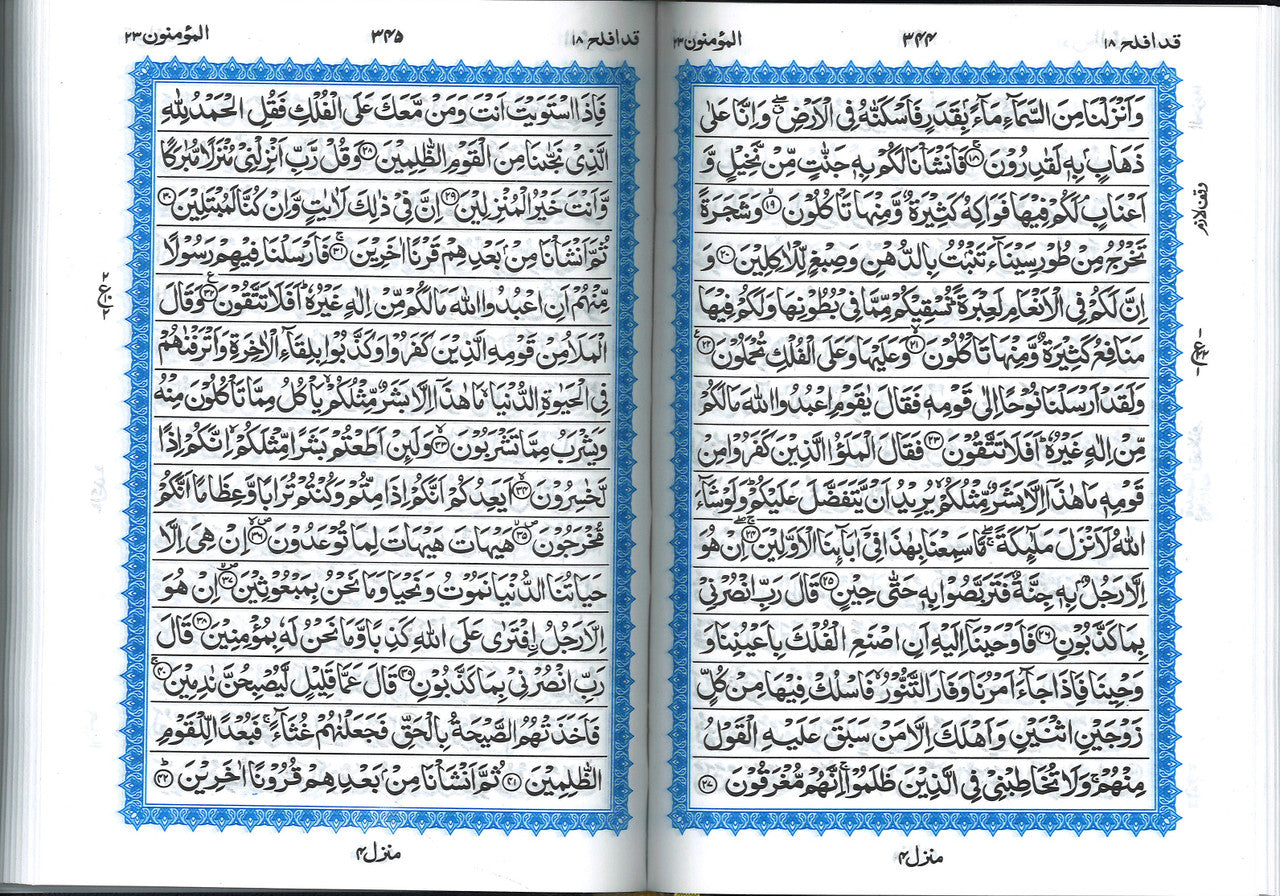 قد افلح ۱۸
۳۴۴
المؤمنون ۲۳
وَاَنْزَلْنَا مِنَ السَّمَآءِ مَآءًۢ بِقَدَرٍ فَاَسْكَنّٰهُ فِی الْاَرْضِ ۖ وَاِنَّا عَلٰی
ذَهَابٍۭ بِهٖ لَقٰدِرُوْنَ ۝۱۸ فَاَنْشَاْنَا لَكُمْ بِهٖ جَنّٰتٍ مِّنْ نَّخِیْلٍ وَّ
اَعْنَابٍ ۘ لَكُمْ فِیْهَا فَوَاكِهُ كَثِیْرَةٌ وَّمِنْهَا تَاْكُلُوْنَ ۝۱۹ وَشَجَرَةً
تَخْرُجُ مِنْ طُوْرِ سَیْنَآءَ تَنْۢبُتُ بِالدُّهْنِ وَصِبْغٍ لِّلْاٰكِلِیْنَ ۝۲۰ وَ
اِنَّ لَكُمْ فِی الْاَنْعَامِ لَعِبْرَةً ؕ نُسْقِیْكُمْ مِّمَّا فِیْ بُطُوْنِهَا وَلَكُمْ فِیْهَا
مَنَافِعُ كَثِیْرَةٌ وَّمِنْهَا تَاْكُلُوْنَ ۝۲۱ وَعَلَیْهَا وَعَلَی الْفُلْكِ تُحْمَلُوْنَ ۝۲۲
وَلَقَدْ اَرْسَلْنَا نُوْحًا اِلٰی قَوْمِهٖ فَقَالَ یٰقَوْمِ اعْبُدُوا اللّٰهَ مَا لَكُمْ
مِّنْ اِلٰهٍ غَیْرُهٗ ؕ اَفَلَا تَتَّقُوْنَ ۝۲۳ فَقَالَ الْمَلَؤُا الَّذِیْنَ كَفَرُوْا مِنْ
قَوْمِهٖ مَا هٰذَاۤ اِلَّا بَشَرٌ مِّثْلُكُمْ ۙ یُرِیْدُ اَنْ یَّتَفَضَّلَ عَلَیْكُمْ ؕ وَلَوْ شَآءَ
اللّٰهُ لَاَنْزَلَ مَلٰٓئِكَةً ۚۖ مَّا سَمِعْنَا بِهٰذَا فِیْۤ اٰبَآئِنَا الْاَوَّلِیْنَ ۝۲۴ اِنْ هُوَ
اِلَّا رَجُلٌۢ بِهٖ جِنَّةٌ فَتَرَبَّصُوْا بِهٖ حَتّٰی حِیْنٍ ۝۲۵ قَالَ رَبِّ انْصُرْنِیْ
بِمَا كَذَّبُوْنِ ۝۲۶ فَاَوْحَیْنَاۤ اِلَیْهِ اَنِ اصْنَعِ الْفُلْكَ بِاَعْیُنِنَا وَ
وَحْیِنَا فَاِذَا جَآءَ اَمْرُنَا وَفَارَ التَّنُّوْرُ ۙ فَاسْلُكْ فِیْهَا مِنْ كُلٍّ
زَوْجَیْنِ اثْنَیْنِ وَاَهْلَكَ اِلَّا مَنْ سَبَقَ عَلَیْهِ الْقَوْلُ
مِنْهُمْ ۚ وَلَا تُخَاطِبْنِیْ فِی الَّذِیْنَ ظَلَمُوْا ۚ اِنَّهُمْ مُّغْرَقُوْنَ ۝۲۷
وقف لازم
منزل ۴
قد افلح ۱۸
۳۴۵
المؤمنون ۲۳
فَاِذَا اسْتَوَیْتَ اَنْتَ وَمَنْ مَّعَكَ عَلَی الْفُلْكِ فَقُلِ الْحَمْدُ لِلّٰهِ
الَّذِیْ نَجّٰىنَا مِنَ الْقَوْمِ الظّٰلِمِیْنَ ۝۲۸ وَقُلْ رَّبِّ اَنْزِلْنِیْ مُنْزَلًا مُّبٰرَكًا
وَّاَنْتَ خَیْرُ الْمُنْزِلِیْنَ ۝۲۹ اِنَّ فِیْ ذٰلِكَ لَاٰیٰتٍ وَّاِنْ كُنَّا لَمُبْتَلِیْنَ ۝۳۰
ثُمَّ اَنْشَاْنَا مِنْۢ بَعْدِهِمْ قَرْنًا اٰخَرِیْنَ ۝۳۱ فَاَرْسَلْنَا فِیْهِمْ رَسُوْلًا
مِّنْهُمْ اَنِ اعْبُدُوا اللّٰهَ مَا لَكُمْ مِّنْ اِلٰهٍ غَیْرُهٗ ؕ اَفَلَا تَتَّقُوْنَ ۝۳۲ وَقَالَ
الْمَلَاُ مِنْ قَوْمِهِ الَّذِیْنَ كَفَرُوْا وَكَذَّبُوْا بِلِقَآءِ الْاٰخِرَةِ وَاَتْرَفْنٰهُمْ
فِی الْحَیٰوةِ الدُّنْیَا ۙ مَا هٰذَاۤ اِلَّا بَشَرٌ مِّثْلُكُمْ ۙ یَاْكُلُ مِمَّا تَاْكُلُوْنَ مِنْهُ
وَیَشْرَبُ مِمَّا تَشْرَبُوْنَ ۝۳۳ وَلَئِنْ اَطَعْتُمْ بَشَرًا مِّثْلَكُمْ ۙ اِنَّكُمْ اِذًا
لَّخٰسِرُوْنَ ۝۳۴ اَیَعِدُكُمْ اَنَّكُمْ اِذَا مِتُّمْ وَكُنْتُمْ تُرَابًا وَّعِظَامًا اَنَّكُمْ
مُّخْرَجُوْنَ ۝۳۵ هَیْهَاتَ هَیْهَاتَ لِمَا تُوْعَدُوْنَ ۝۳۶ اِنْ هِیَ اِلَّا
حَیَاتُنَا الدُّنْیَا نَمُوْتُ وَنَحْیَا وَمَا نَحْنُ بِمَبْعُوْثِیْنَ ۝۳۷ اِنْ هُوَ
اِلَّا رَجُلُ اِ۟فْتَرٰی عَلَی اللّٰهِ كَذِبًا وَّمَا نَحْنُ لَهٗ بِمُؤْمِنِیْنَ ۝۳۸ قَالَ
رَبِّ انْصُرْنِیْ بِمَا كَذَّبُوْنِ ۝۳۹ قَالَ عَمَّا قَلِیْلٍ لَّیُصْبِحُنَّ نٰدِمِیْنَ ۝۴۰
فَاَخَذَتْهُمُ الصَّیْحَةُ بِالْحَقِّ فَجَعَلْنٰهُمْ غُثَآءً ۚ فَبُعْدًا لِّلْقَوْمِ
الظّٰلِمِیْنَ ۝۴۱ ثُمَّ اَنْشَاْنَا مِنْۢ بَعْدِهِمْ قُرُوْنًا اٰخَرِیْنَ ۝۴۲
منزل ۴